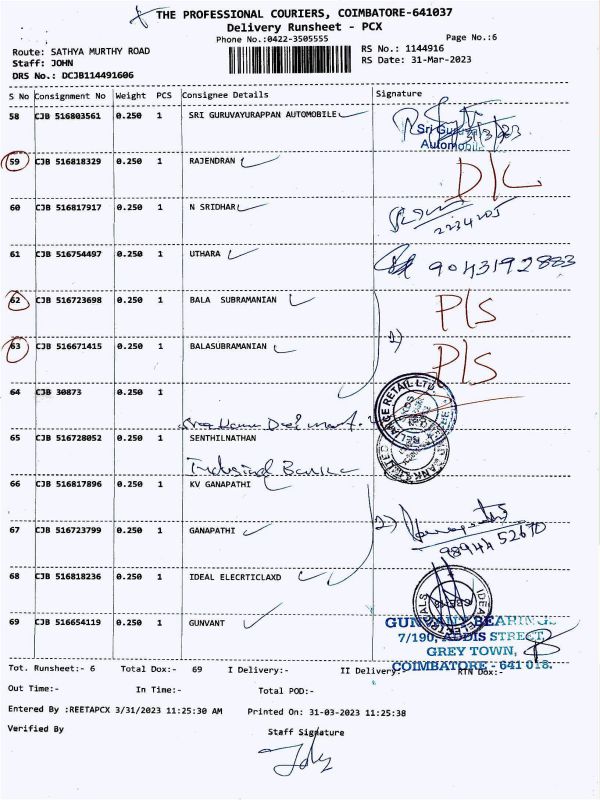 THE PROFESSIONAL COURIERS, COIMBATORE-641037
Delivery Runsheet - PCX
Phone No.:0422-3505555
Page No.:6
Route: SATHYA MURTHY ROAD
RS No.: 1144916
Staff: JOHN
RS Date: 31-Mar-2023
DRS No.: DCJB114491606
S No Consignment No Weight PCS Consignee Details Signature
58 CJB 516803561 0.250 1 SRI GURUVAYURAPPAN AUTOMOBILE
Automobile
59 CJB 516818329 0.250 1 RAJENDRAN D/L
60 CJB 516817917 0.250 1 N SRIDHAR
2234205
61 CJB 516754497 0.250 1 UTHARA 9043192883
62 CJB 516723698 0.250 1 BALA SUBRAMANIAN P/S
1)
63 CJB 516671415 0.250 1 BALASUBRAMANIAN P/S
64 CJB 30873 0.250 1
RELIANCE RETAIL LTD
65 CJB 516728052 0.250 1 SENTHILNATHAN
66 CJB 516817896 0.250 1 KV GANAPATHI
67 CJB 516723799 0.250 1 GANAPATHI 2)
9894452670
68 CJB 516818236 0.250 1 IDEAL ELECRTICLAXD
69 CJB 516654119 0.250 1 GUNVANT
GUNVANT BEARINGS
7/190, ADDIS STREET,
GREY TOWN,
COIMBATORE - 641 018.
Tot. Runsheet:- 6 Total Dox:- 69 I Delivery:- II Delivery:- RTN Dox:-
Out Time:- In Time:- Total POD:-
Entered By :REETAPCX 3/31/2023 11:25:30 AM Printed On: 31-03-2023 11:25:38
Verified By Staff Signature